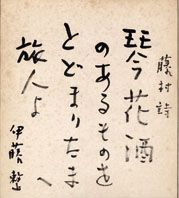 藤村詩
琴花酒
のあるものを
とどまりたまへ
旅人よ
伊藤整